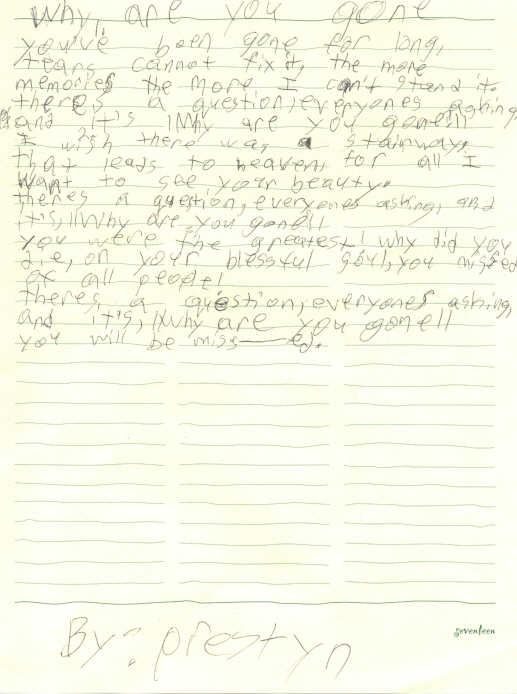 Why, are you gone
you've been gone for long,
tears cannot fix it, the more
memories the more I can't stand it.
theres a question, everyones asking,
and it's, "Why are you gone"
I wish there was a stairway,
that leads to heaven, for all I
want to see your beauty.
theres a question, everyones asking, and
it's, "Why are you gone"
you were the greatest! why did you
die, on your blessful soul, you missed
of all people!
theres a question, everyones asking,
and it's, "Why are you gone"
you will be miss—ed.
seventeen
By: prestyn